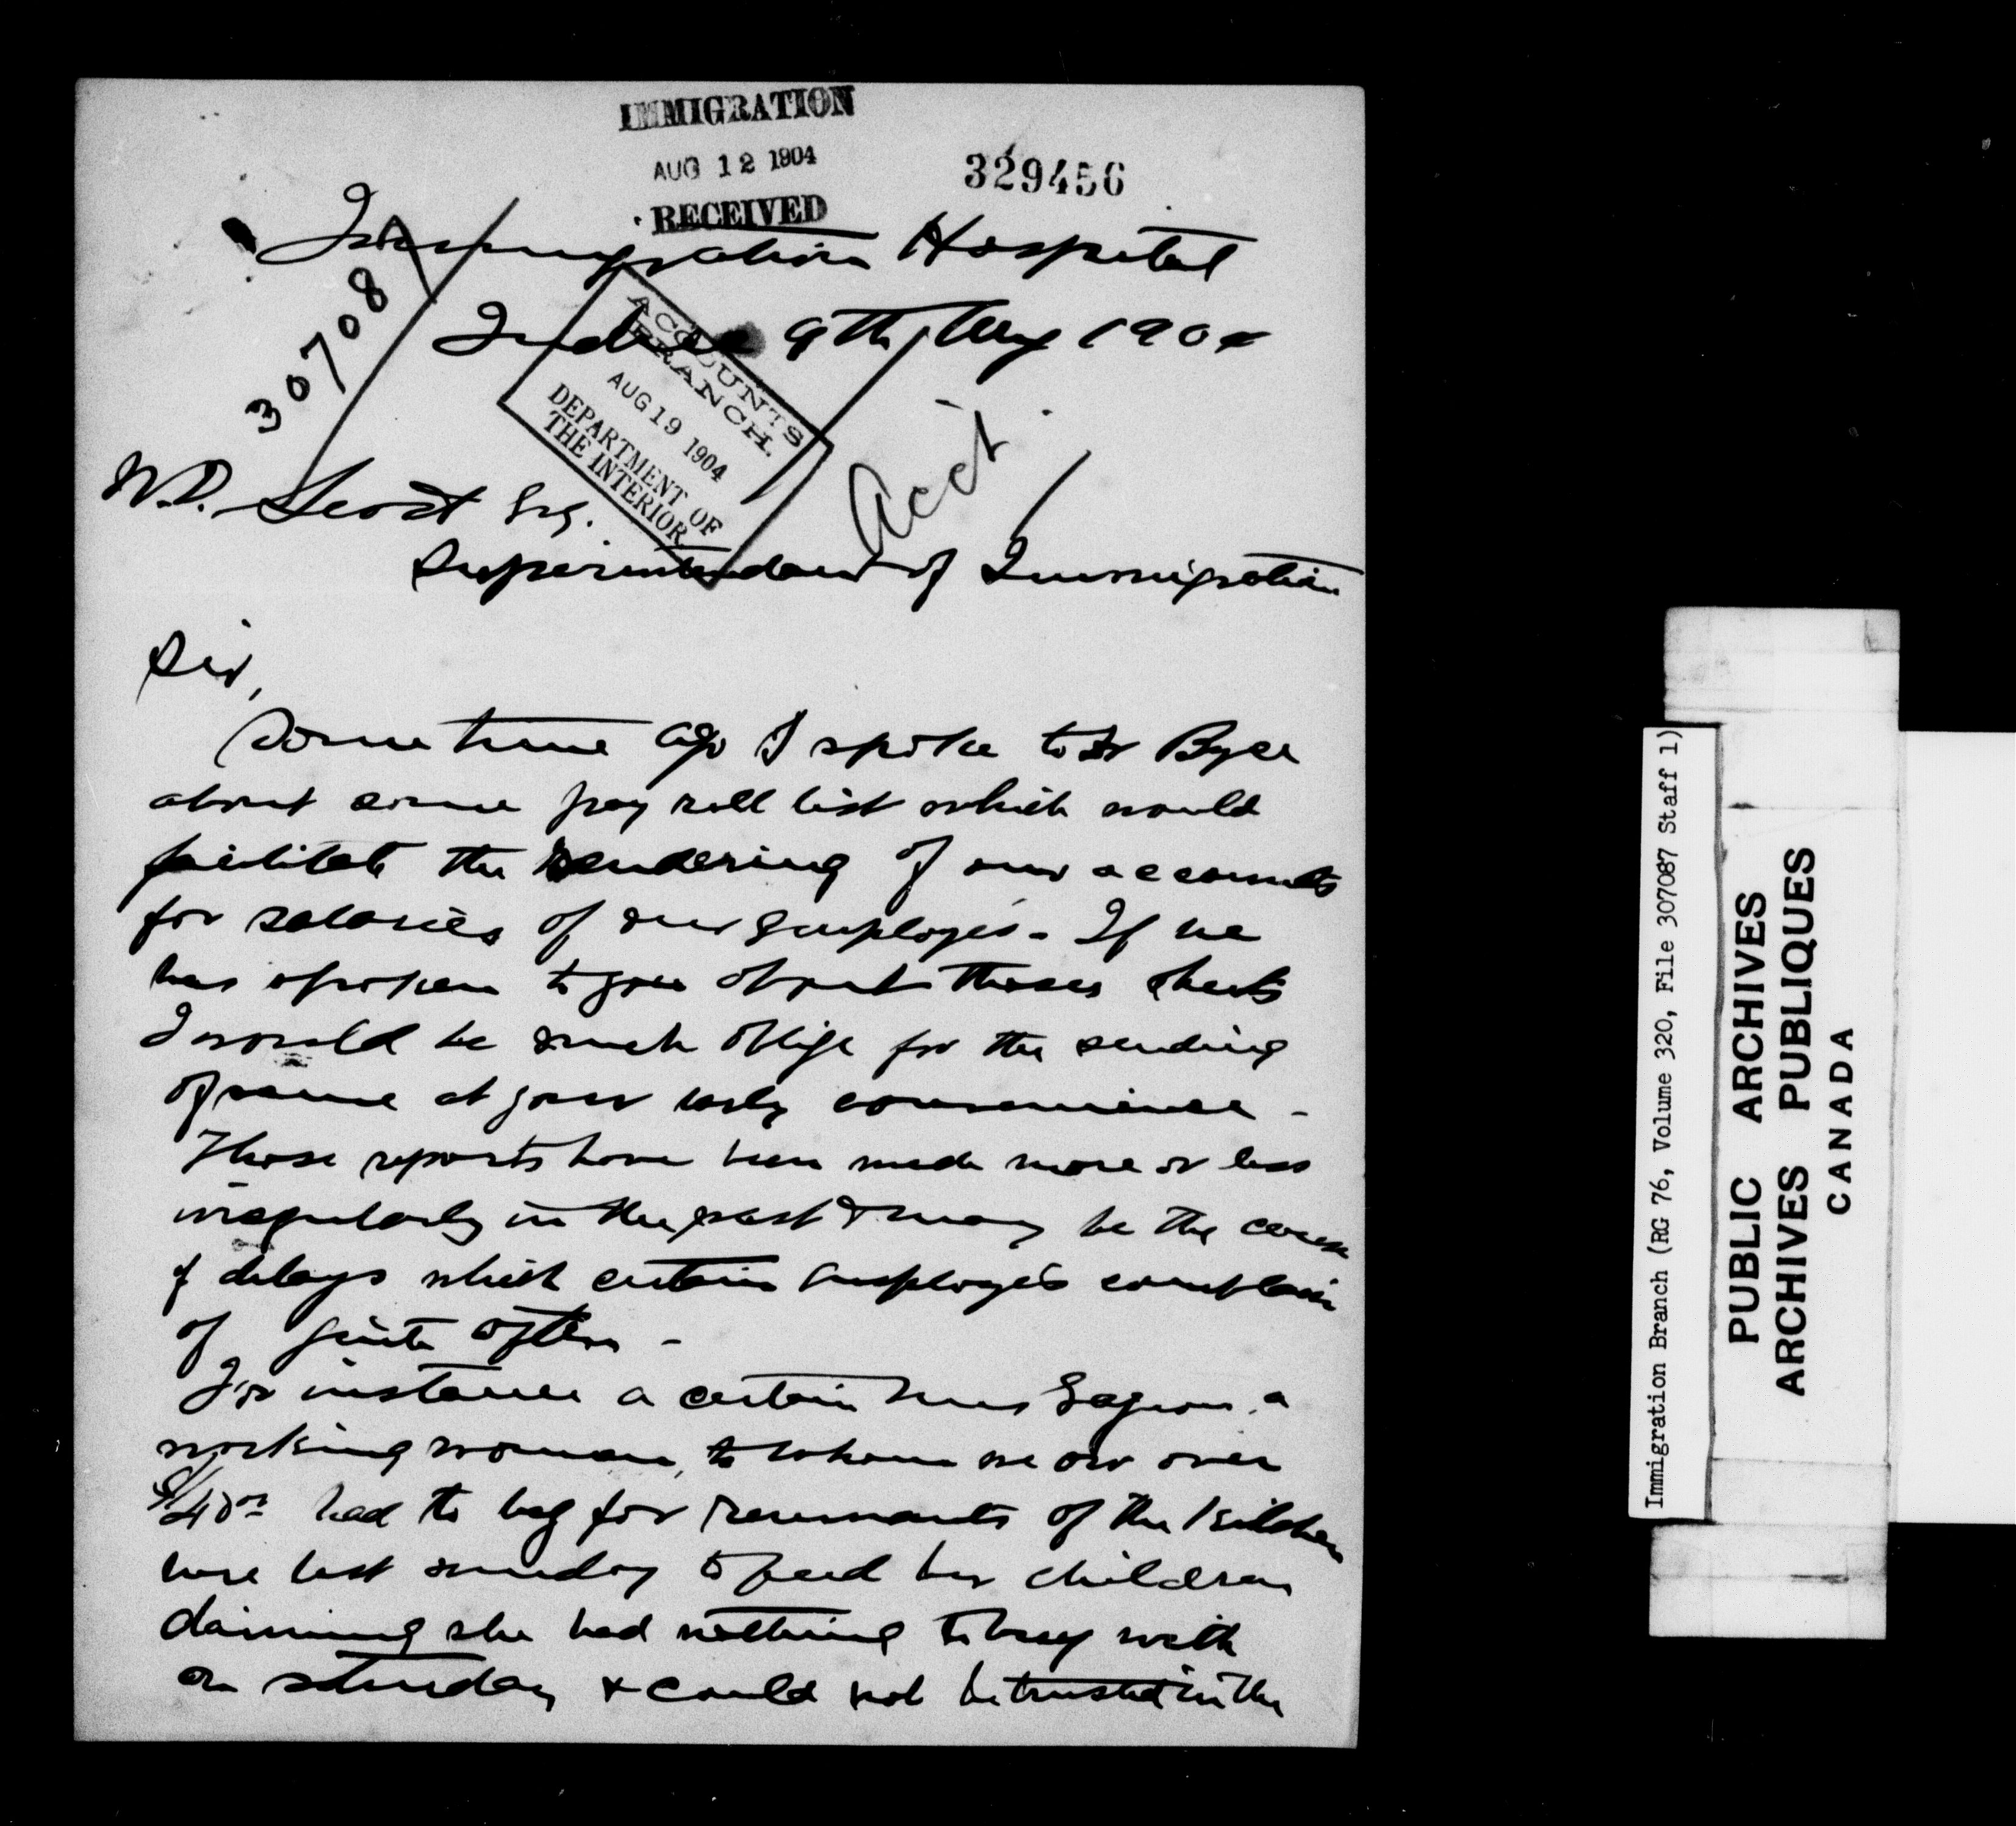 IMMIGRATION
AUG 12 1904
RECEIVED
329456
Immigration Hospital
9th Aug 1904
30708
ACCOUNTS
BRANCH.
AUG 19 1904
DEPARTMENT OF
THE INTERIOR
Acct.
W.D. Scott Esq.
Superintendant of Immigration
Sir,
Some time ago I spoke to Dr Bryce
about some pay roll list which would
facilitate the rendering of our accounts
for salaries of our Employés - If he
has spoken to you about theses sheets
I would be much oblige for the sending
of same at your early convenience -
Those reports have been made more or less
irregularly in the past & may be the cause
of delays which certain employés complain
of quite often -
For instance a certain Mrs Gagnon, a
working woman, to whom we ow over
$40 had to beg for remnants of the Kitchen
here last sunday to feed her children
claiming she had nothing to buy with
on saturday & could not be trusted in the
Immigration Branch (RG 76, Volume 320, File 307087 Staff 1)
PUBLIC ARCHIVES
ARCHIVES PUBLIQUES
CANADA